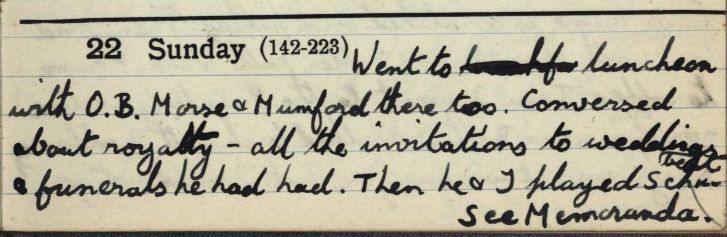 22 Sunday (142-223) Went to luncheon
with O.B. Morse & Mumford there too. Conversed
about royalty - all the invitations to weddings
& funerals he had had. Then he & I played Schu-
bert
See Memoranda.